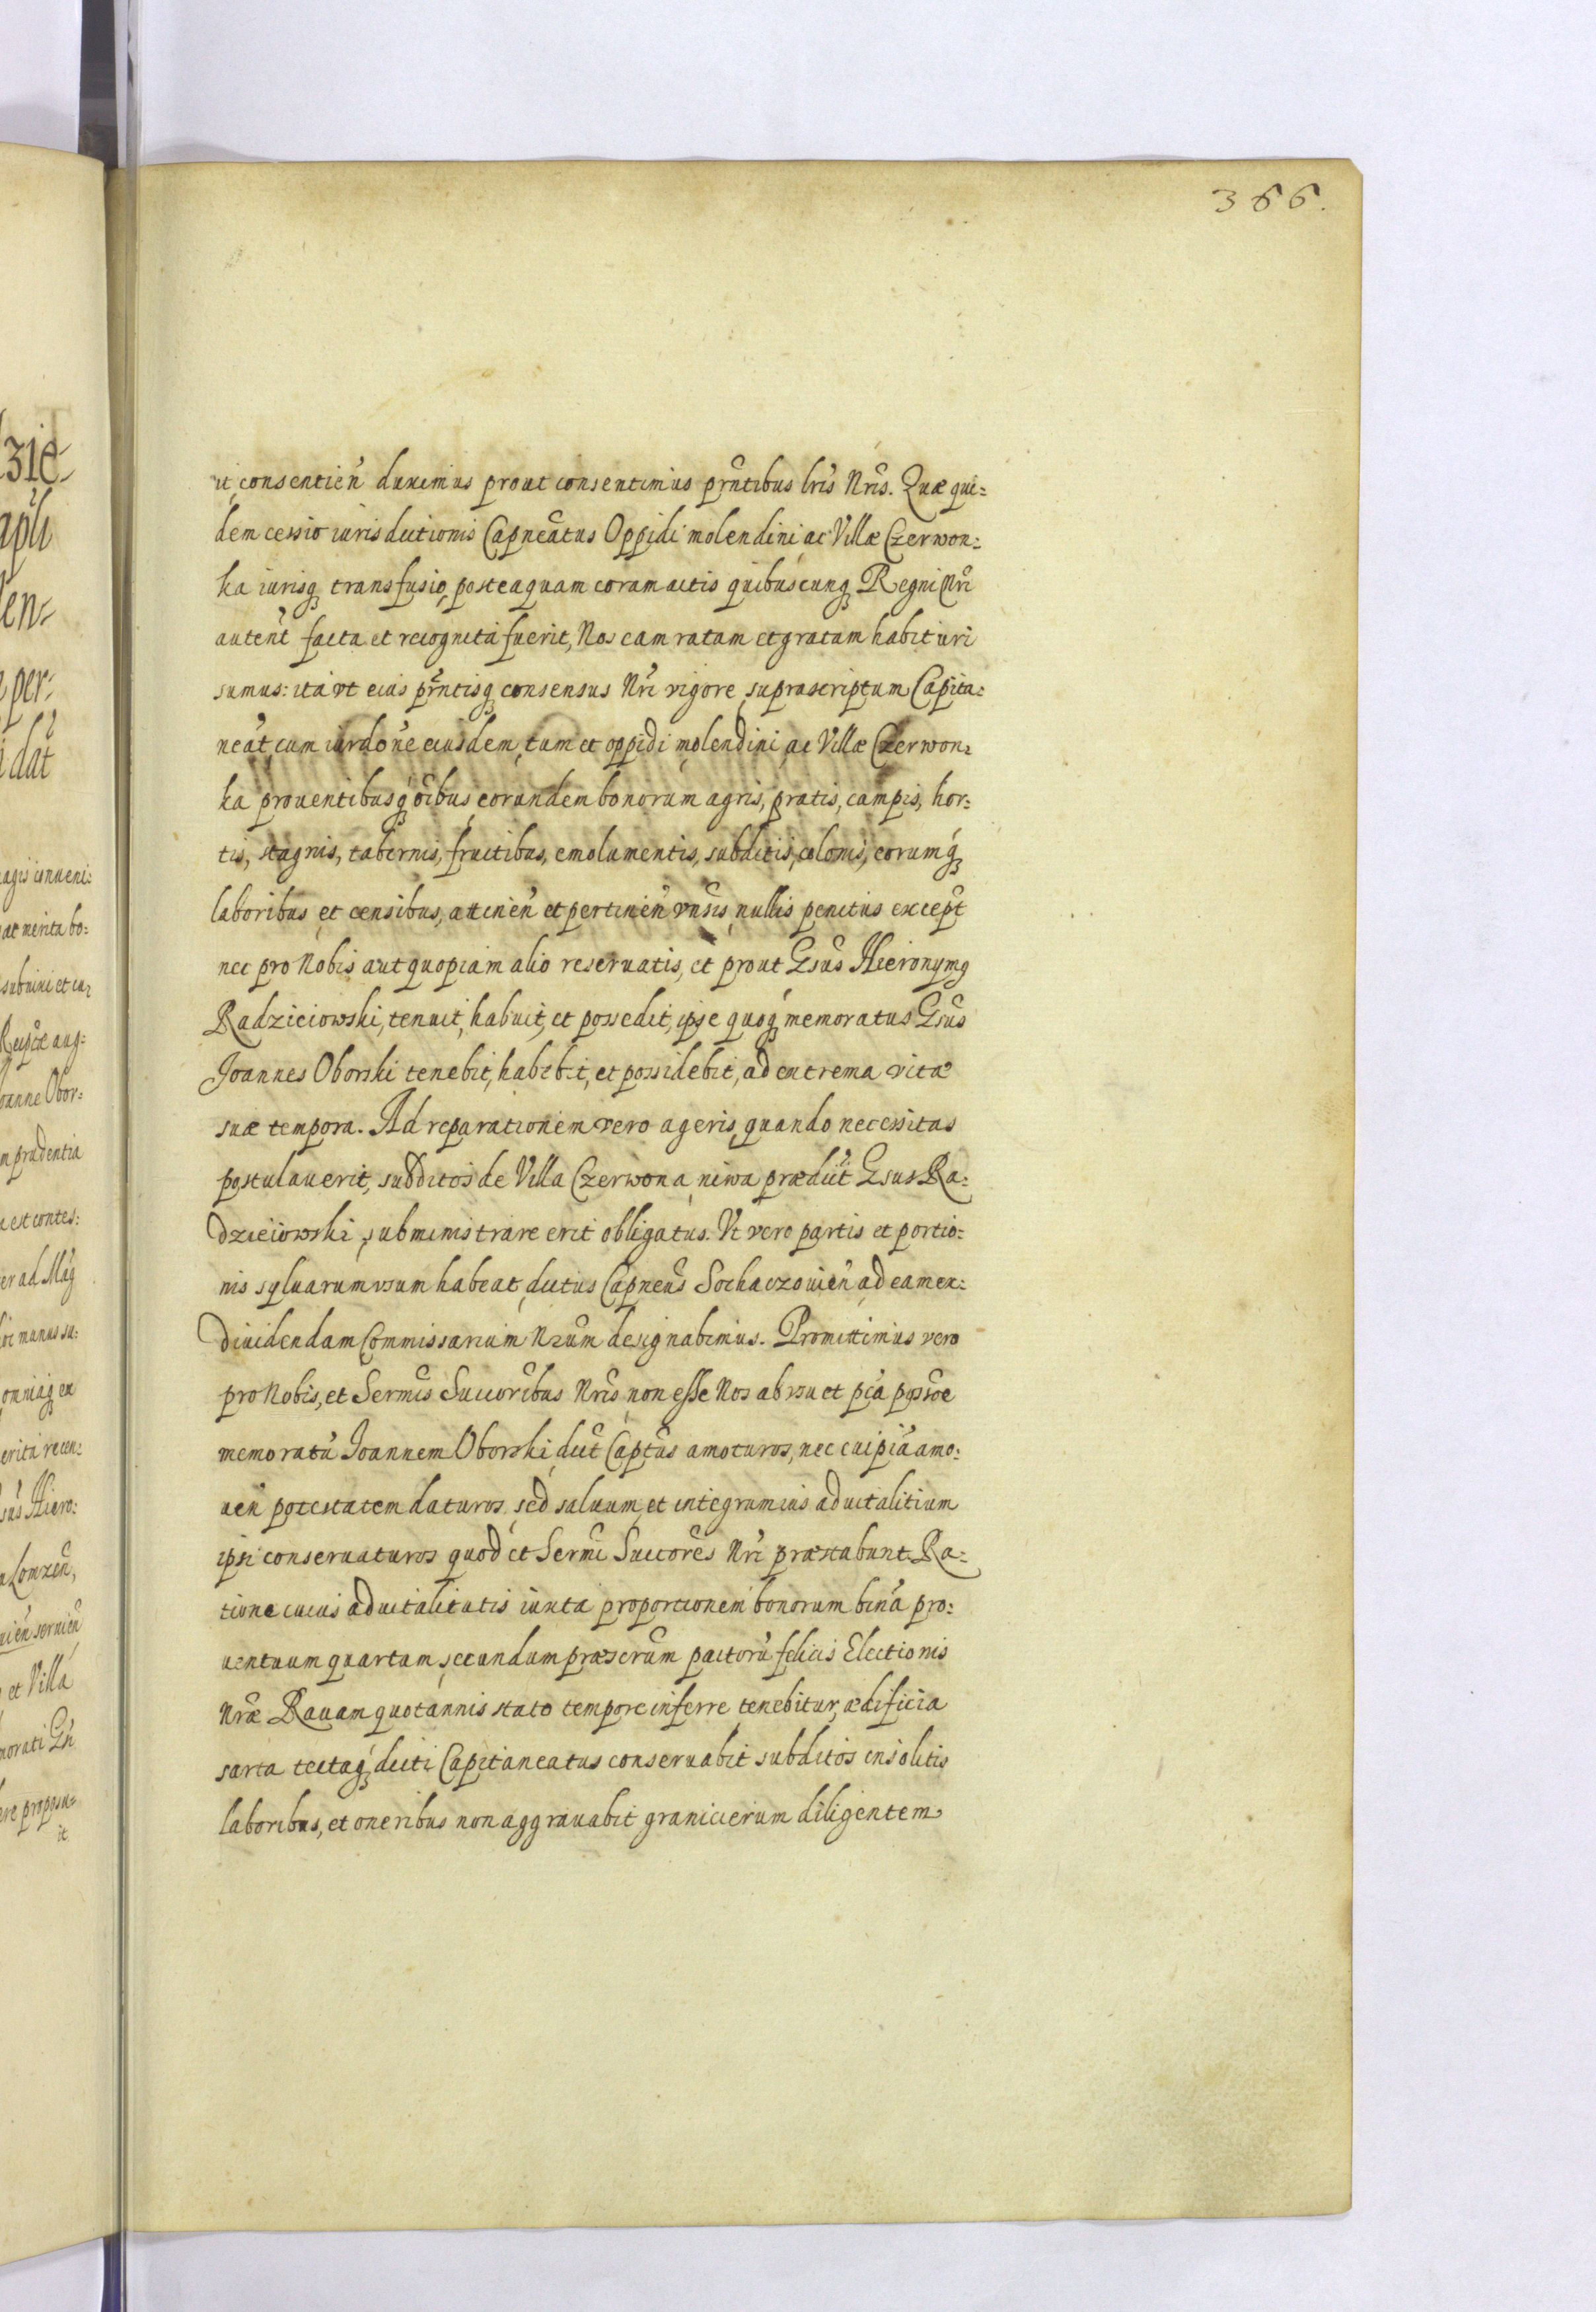 366.
it, consentien̄ duximus prout consentimus prn̄tibus lr̄is Nr̄is. Quæ qui=
dem cessio iurisdictionis Capnēatus Oppidi molendini ac Villæ Czerwon=
ka iurisq transfusio, posteaquam coram actis quibuscunq Regni Nr̄i
autent̄ facta et recognita fuerit, Nos eam ratam et gratam habituri
sumus: ita vt eius prn̄tisq consensus Nr̄i vigore suprascriptum Capita=
neat̄ cum iurdōne eiusdem, tum et oppidi molendini ac Villæ Czerwon=
ka prouentibusq́ oībus eorundem bonorum agris, pratis, campis, hor=
tis, stagnis, tabernis, fructibus, emolumentis, subditis, colonis, eorumq́
laboribus et censibus, attinen̄ et pertinen̄ vn̄sis nullis penitus except̄
nec pro Nobis aut quopiam alio reseruatis, et prout Gs̄us Hieronymq
Radzieiowski, tenuit, habuit, et possedit, ipse quoq́ memoratus Gs̄us
Joannes Oborski tenebit, habebit, et possidebit, ad extrema vitæ
suæ tempora. Ad reparationem vero ageris, quando necessitas
postulauerit, subditos de Villa Czerwona niwa prædict̄ Gsus Ra=
dzieiowski, subministrare erit obligatus. Vt vero partis et portio=
nis syluarum vsum habeat dictus Capneus̄ Sochaczouien̄ ad eam ex=
diuidendam Commissarium Nr̄um designabimus. Promittimus vero
pro Nobis, et Serm̄is Succorībus Nr̄is non esse Nos ab vsu et pcā possōe
memoratū Joannem Oborski dict̄ Captūs amoturos, nec cuipiā amo=
uen̄ potestatem daturos sed saluum et integrum ius aduitalitium
ipsi conseruaturos quod et Serm̄i Succorēs Nr̄i præstabunt. Ra=
tione cuius aduitalitatis iuxta proportionem bonorum binā pro=
uentuum quartam, secundum præscrūm pactorū felicis Electionis
Nr̄æ Rauam quotannis stato tempore inferre tenebitur, ædificia
sarta tectaq́ dicti Capitaneatus conseruabit subditos insolitis
laboribus, et oneribus non aggrauabit granicierum diligentem